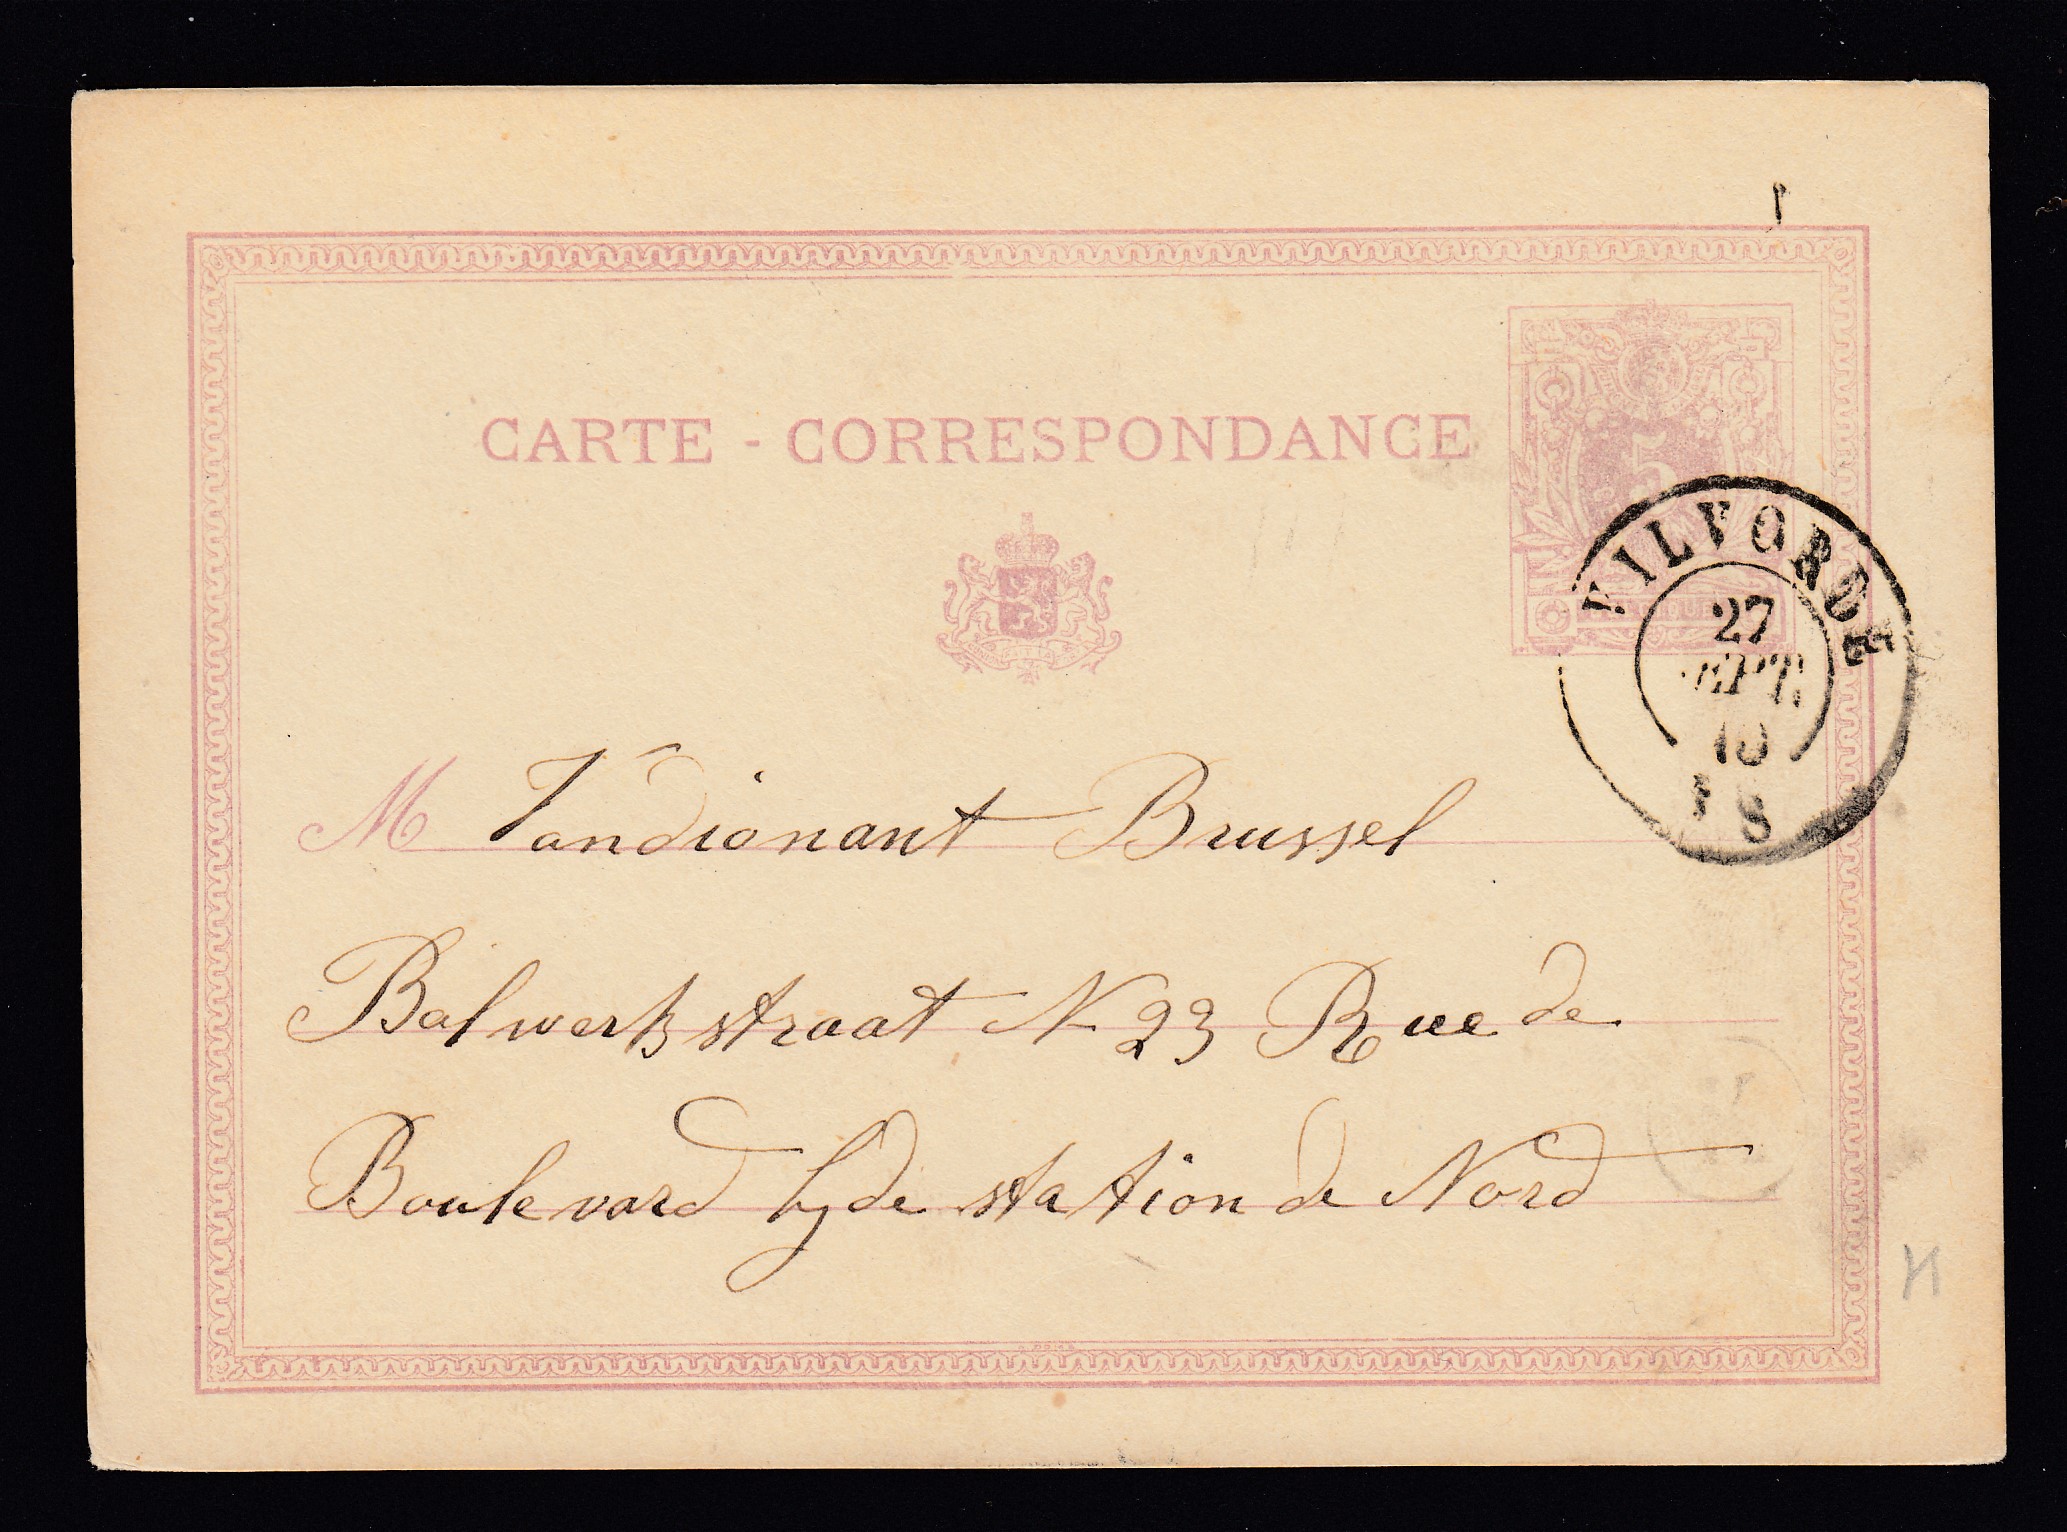 CARTE - CORRESPONDANCE
5
VILVORDE
27
SEPT.
10
8
M Vandionant Brussel
Bolwerkstraat N 23 Rue de
Boulevard by de station de Nord